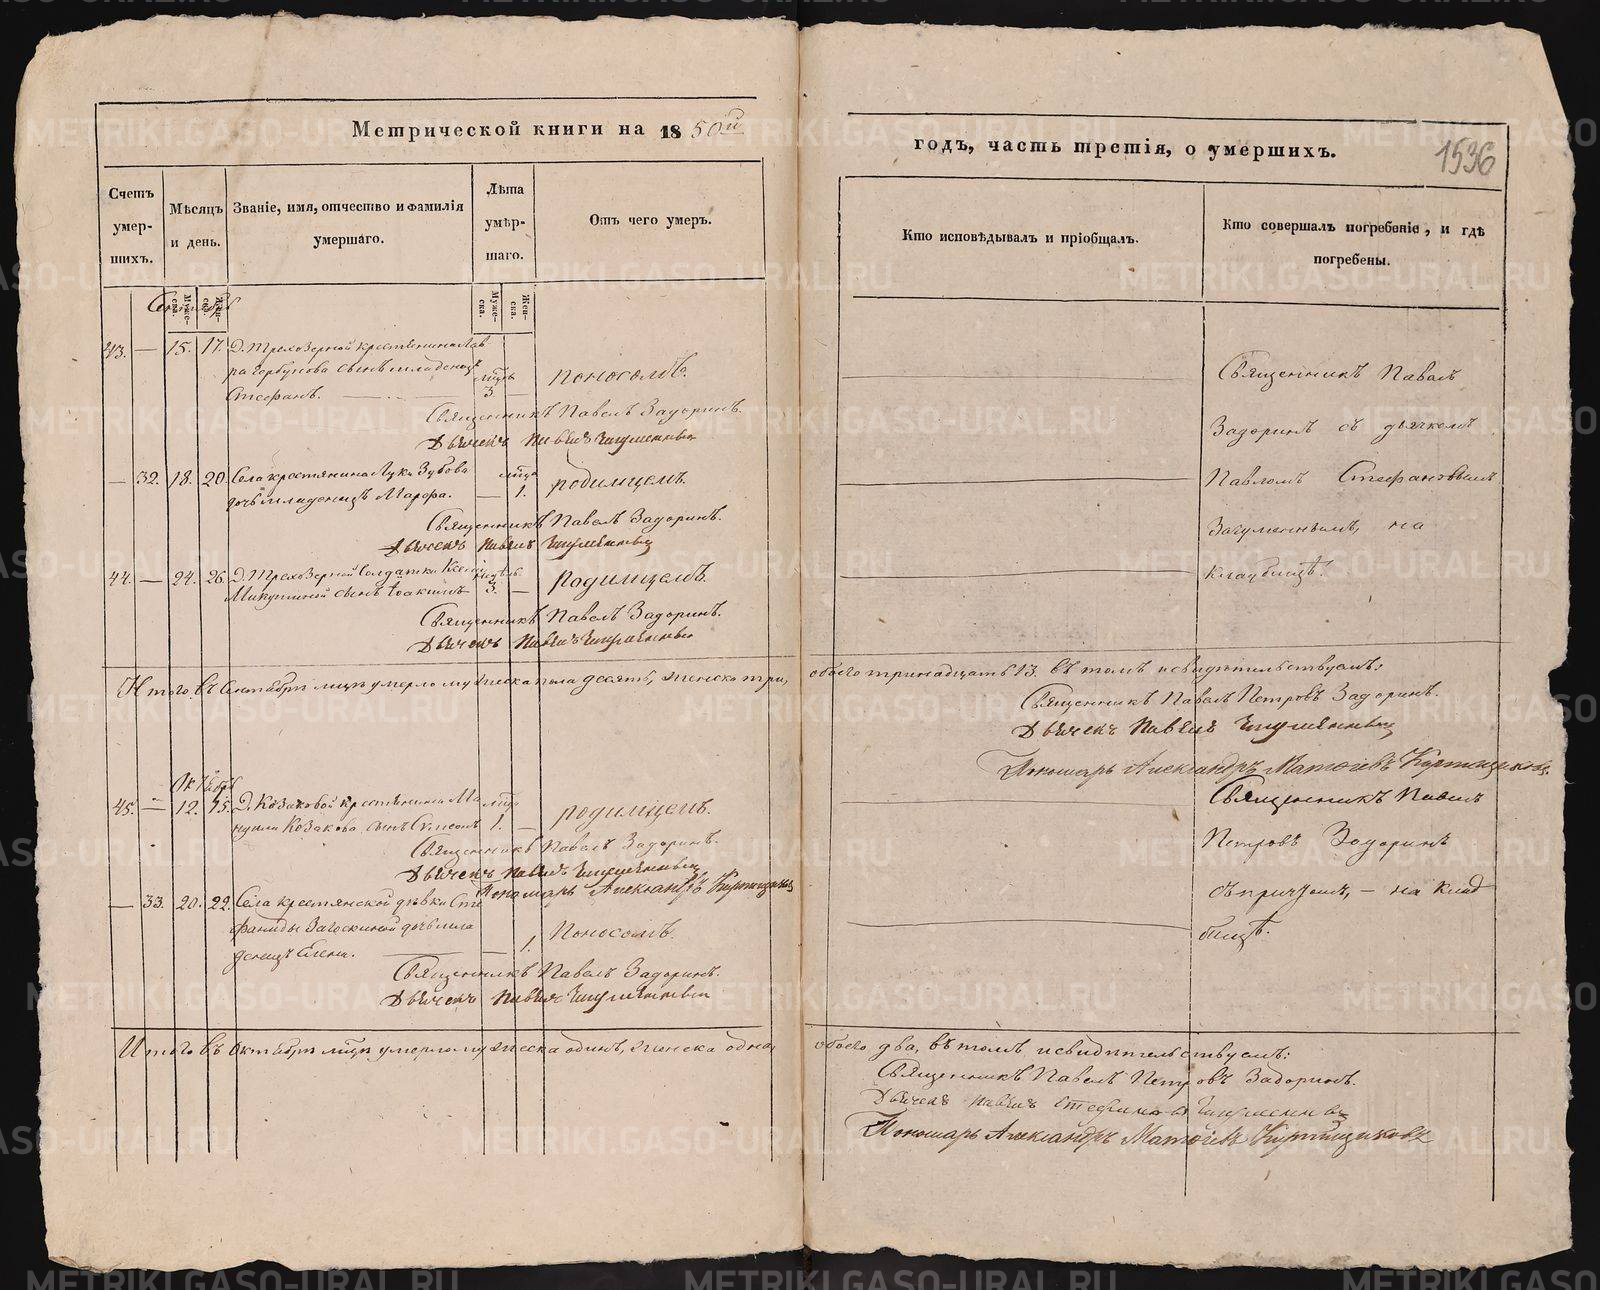 Метрической книги на 1850й
Счетъ умер-шихъ.
Мѣсяцъ и день.
Званіе, имя, отчество и фамилія умершаго.
Лѣта умѣр-шаго.
Отъ чего умеръ.
Муже-ска.
Жен-ска.
Муже-ска.
Жен-ска.
Сентябрь
43. — 15. 17. Д. Трехозерной крестьянина Лав
ра Горбунова сынъ младенецъ мѣцъ
Стефанъ. 3. — поносомъ.
Священникъ Павелъ Задоринъ.
Дьячекъ Павелъ
— 32. 18. 20. Села крестьянина Луки Зубова мѣца
дочь младенецъ Марфа. — 1. родимцемъ.
Священникъ Павелъ Задоринъ.
Дьячекъ Павелъ
44. — 24. 26. Д. Трехозерной солдатки Ксеніи недѣль
Микушиной сынъ Іоакимъ 3. — родимцемъ.
Священникъ Павелъ Задоринъ.
Дьячекъ Павелъ
Итого въ Сентябрѣ мцѣ умерло мужеска пола десять, женска три,
Октябрь
45. — 12. 15. Д. Козаковой крестьянина Ма мцъ
нуила Козакова сынъ Симеонъ 1. — родимцемъ.
Священникъ Павелъ Задоринъ.
Дьячекъ Павелъ
Пономарь Александръ
— 33. 20. 22. Села крестьянской дѣвки Сте
фаниды Загоскиной дочь мла
денецъ Елена. — 1. Поносомъ.
Священникъ Павелъ Задоринъ.
Дьячекъ Павелъ
Итого въ Октябрѣ мцѣ умерло мужеска одинъ, женска одна,
годъ, часть третія, о умершихъ.
1536
Кто исповѣдывалъ и пріобщалъ.
Кто совершалъ погребеніе, и гдѣ погребены.
Священникъ Павелъ
Задоринъ съ дьячкомъ
Павломъ Стефановымъ
на
кладбищѣ.
обоего тринадцать 13. въ томъ и свидѣтельствуемъ:
Священникъ Павелъ Петровъ Задоринъ.
Дьячекъ Павелъ
Пономарь Александръ Матѳіевъ
Священникъ Павелъ
Петровъ Задоринъ
съ причтомъ, — на клад
бищѣ.
обоего два, въ томъ и свидѣтельствуемъ:
Священникъ Павелъ Петровъ Задоринъ.
Дьячекъ Павелъ Стефановъ
Пономарь Александръ Матѳіевъ
METRIKI.GASO-URAL.RU